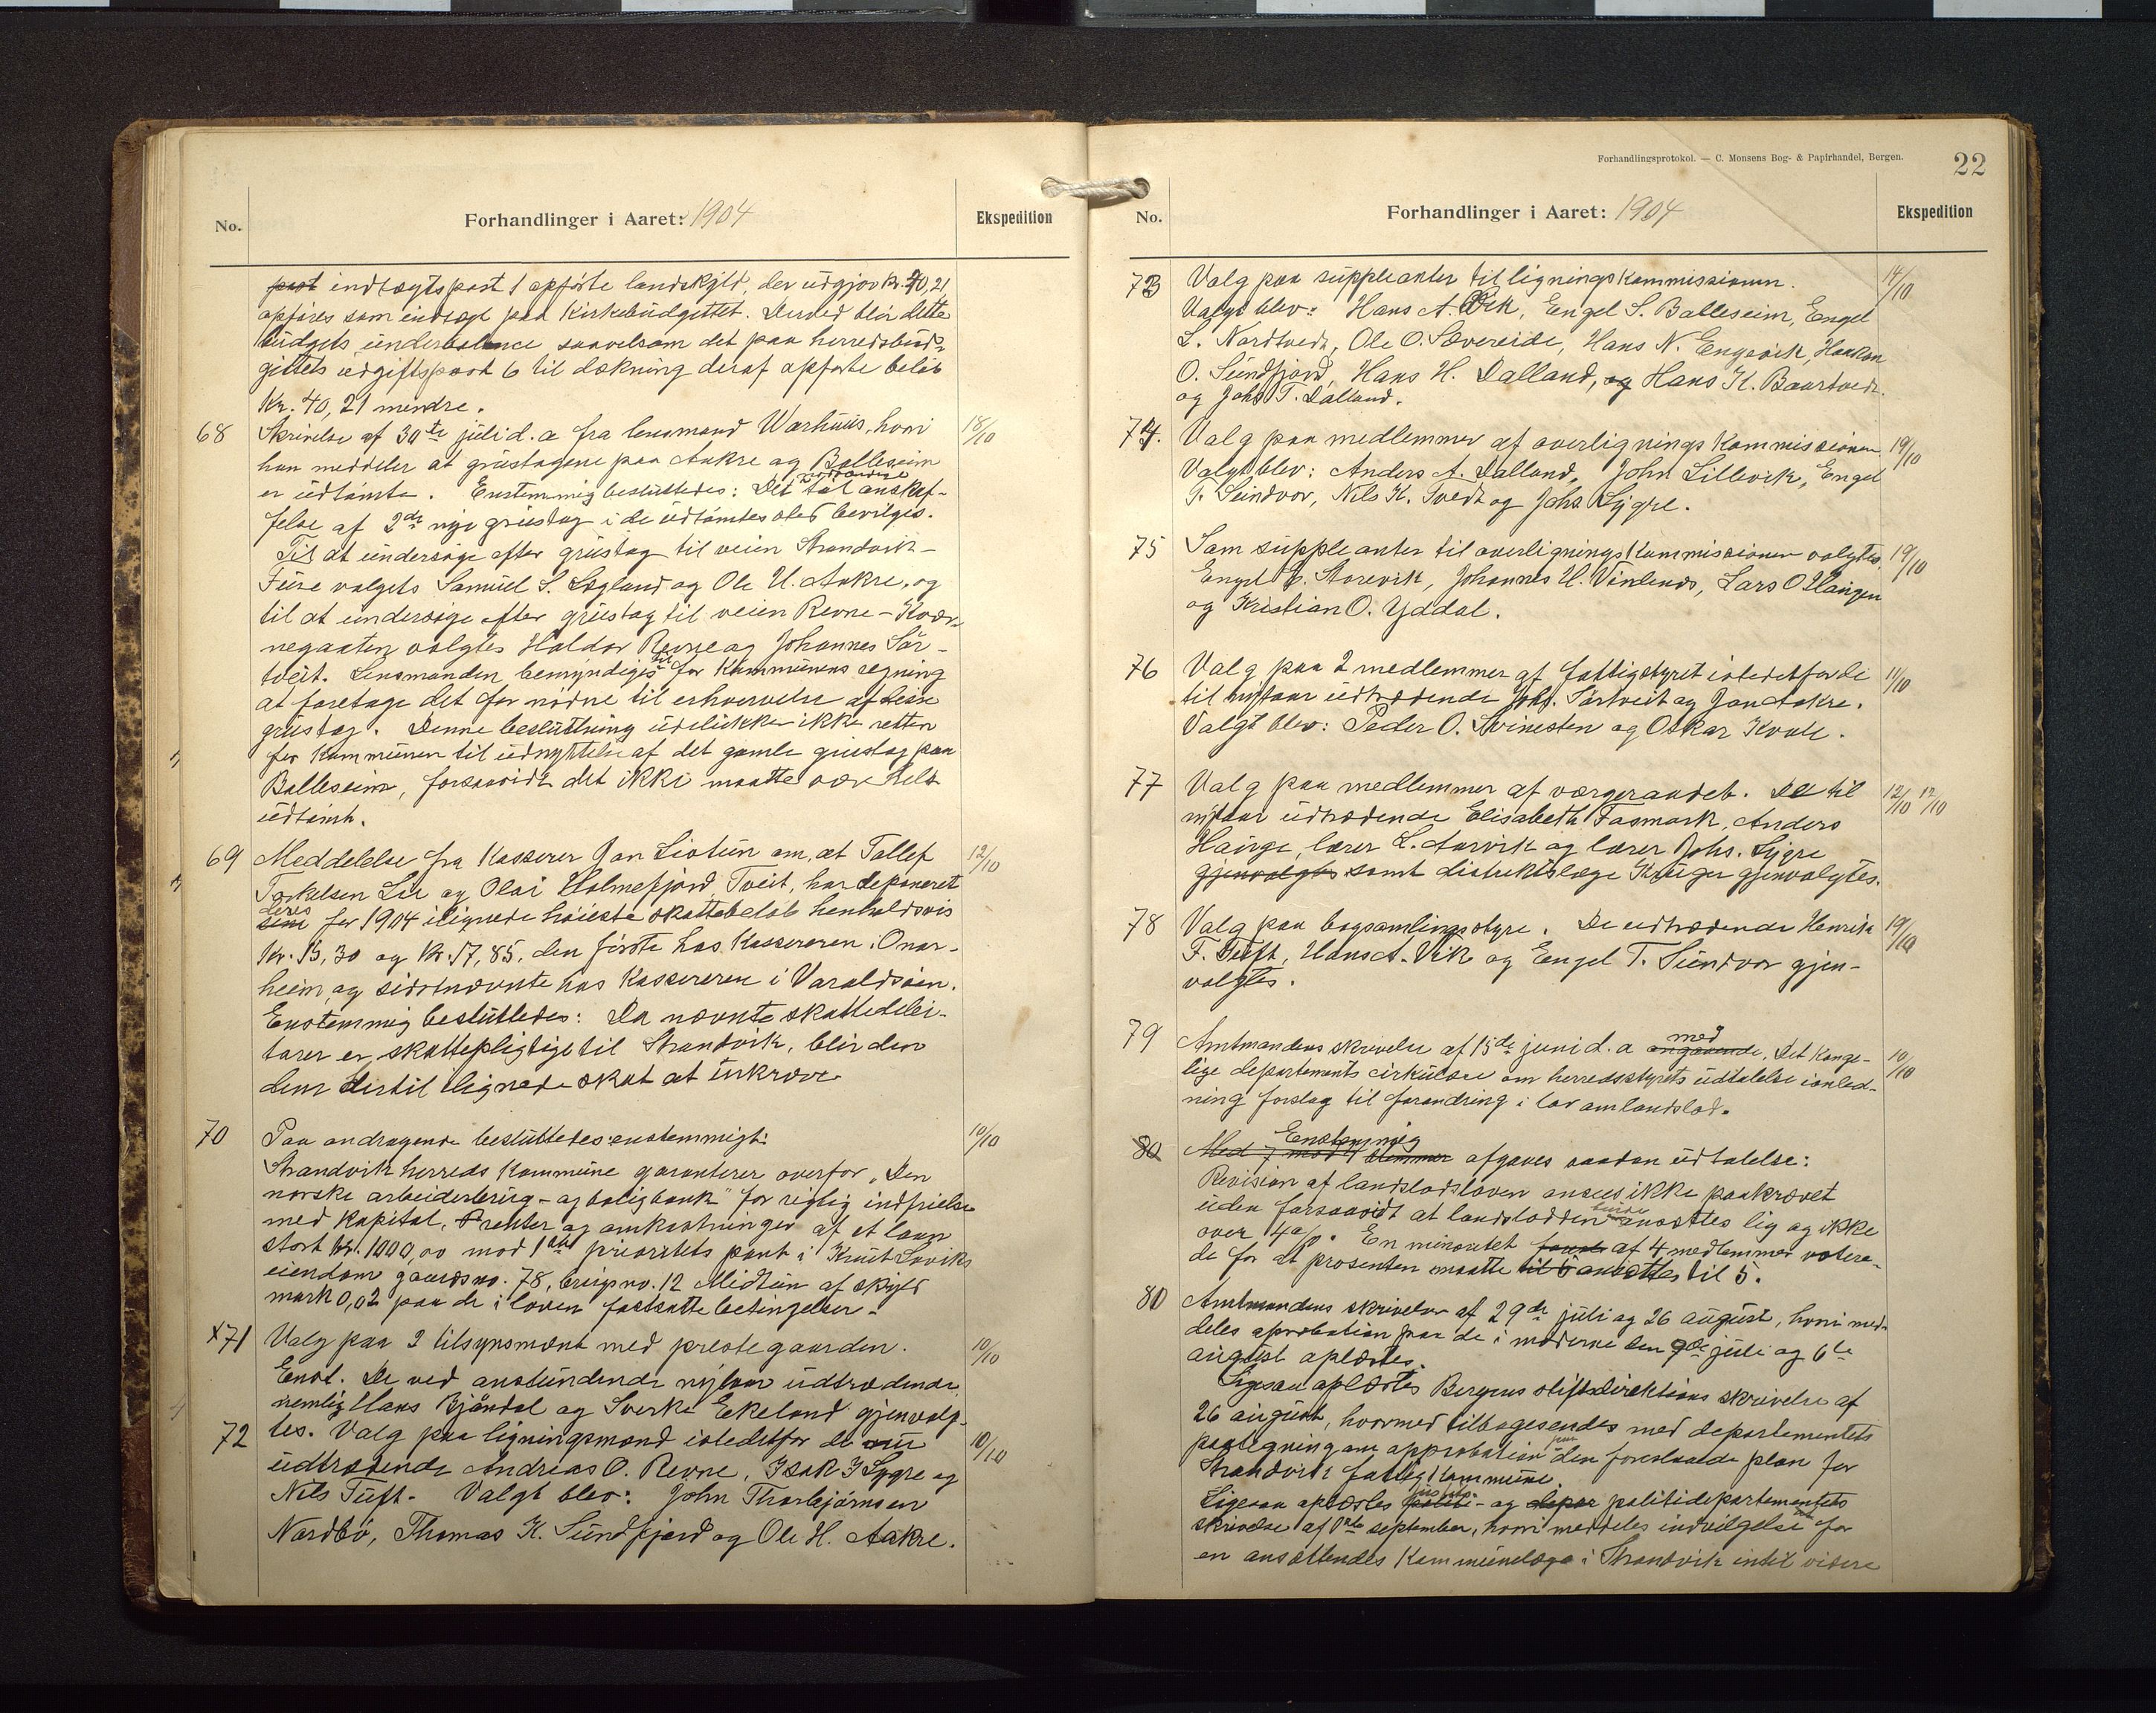 No.
Forhandlinger i Aaret: 1904
Ekspedition
post indtægtspost 1 opførte landskyld, der udgjør kr. 40,21
opføres som indtægt paa Kirkebudgettet. Derved blir dette
budgets underbalance saavelsom det paa herredsbud-
gettets udgiftspost 6 til dækning deraf opførte beløb
Kr. 40,21 mindre.
68 Skrivelse af 30te juli d. a fra lensmand Warhuus, hvori 18/10
han meddeler at grustagene paa Aakre og Balleseim
er udtømte. Enstemmig besluttedes: Det til anskaf-
felse af 2de nye grustag i de udtømtes sted bevilges.
Til at undersøge efter grustag til veien Strandvik-
Fuse valgtes Samuel S. Lægland og Ole U. Aakre, og
til at undersøge efter grustag til veien Revne-Kvær-
negaaten valgtes Haldor Revne og Johannes Sør-
tveit. Lensmanden bemyndiges til for Kommunens regning
at foretage det fornødne til erhvervelse af disse
grustag. Denne beslutning udelukker ikke retten
for Kommunen til udnyttelse af det gamle grustag paa
Balleseim, forsaavidt det ikke maatte være helt
udtømt.
69 Meddelelse fra Kasserer Jan Liotun om, at Tollef 12/10
Torkelsen Lie og Olai Holmefjord, Tveit, har deponeret
sine deres for 1904 ilignede høieste skattebeløb henholdsvis
Kr. 15,30 og Kr. 17,85, den første hos Kassereren i Onar-
heim og sidstnævnte hos Kassereren i Varaldsøen.
Enstemmig besluttedes: Da nævnte skattedebi-
torer er skattepligtige til Strandvik, blir den
dem dertil lignede skat at inkræve
70 Paa andragende besluttedes enstemmigt: 10/10
Strandvik herreds Kommune garanterer overfor "Den
norske arbeiderbrug- og boligbank" for rigtig indfrielse
med Kapital, renter og omkostninger af et laan
stort kr. 1000,00 mod 1ste prioritets pant i Knut Løviks
eiendom gaardsno. 78, brugsno. 12 Midtun af skyld
mark 0,02 paa de i loven fastsatte betingelser.
x71 Valg paa 2 tilsynsmænt med prestegaarden. 10/10
Enst. De ved anstundende nytaar udtrædende,
nemlig Hans Bjøndal og Sverke Ekeland gjenvalg-
72 tes. Valg paa ligningsmænd istedetfor de nu 10/10
udtrædende Andreas O. Revne, Isak I Lygre og
Nils Tuft. Valgt blev: John Thorbjørnsen
Nordbø, Thomas K. Sundfjord og Ole H. Aakre.
Forhandlingsprotokol. — C. Monsens Bog- & Papirhandel, Bergen.
22
No.
Forhandlinger i Aaret: 1904
Ekspedition
73 Valg paa suppleanter til ligningskommissionen. 14/10
Valgt blev: Hans A. Vik, Engel S. Balleseim, Engel
L. Nordtvedt, Ole O. Sævereide, Hans N. Engevik, Haakon
O. Sundfjord, Hans H. Dalland, og Hans K. Baartvedt
og Johs T. Dalland.
74. Valg paa medlemmer af overligningskommissionen. 19/10
Valgt blev: Anders A. Dalland, John Lillevik, Engel
T. Sundvor, Nils K. Tvedt og Johs. Lygre.
75 Som suppleanter til overligningskommissionen valgtes 19/10
Engel E. Storevik, Johannes H. Vinlends, Lars O Haugen
og Kristian O. Yddal.
76 Valg paa 2 medlemmer af fattigstyret istedetfor de 11/10
til nytaar udtrædende Johs. Sørtveit og Jon Aakre.
Valgt blev: Peder O. Svinesten og Oskar Kvale.
77 Valg paa medlemmer af værgeraadet. De til 12/10 12/10
nytaar udtrædende Elisabeth Fasmark, Anders
Hauge, lærer L. Aarvik og lærer Johs. Lygre
gjenvalgtes samt distriktslæge Krüger gjenvalgtes.
78 Valg paa bogsamlingsstyre. De udtrædende Henrik 19/10
F. Tuft, Hans A. Vik og Engel T. Sundvor gjen-
valgtes.
79 Amtmandens skrivelse af 15de juni d. a angaaende med Det Konge- 10/10
lige departements cirkulære om herredsstyrets udtalelse i anled-
ning forslag til forandring i lov om landslod.
80 Med 7 mod 4 stemmer Enstemmig afgaves saadan udtalelse:
Revision af landslodsloven ansees ikke paakrævet
uden forsaavidt at landslodden burde ansættes lig og ikke
over 4%. En minoritet af 4 medlemmer votere-
de for at prosenten maatte til 5 ansættes til 5.
80 Amtmandens skrivelser af 29de juli og 26 august, hvori med-
deles aprobation paa de i møderne den 9de juli og 6te
august oplæstes.
Ligesaa oplæstes Bergens stiftsdirektions skrivelse af
26 august, hvormed tilbagesendes med departementets
paategning om approbation paa den foreslaaede plan for
Strandvik fattigkommune.
Ligesaa oplæstes politi- justits- og depar politidepartementets
skrivelse af 1ste september, hvori meddeles indvilgelse for
en ansættendes Kommunelæge i Strandvik indtil videre